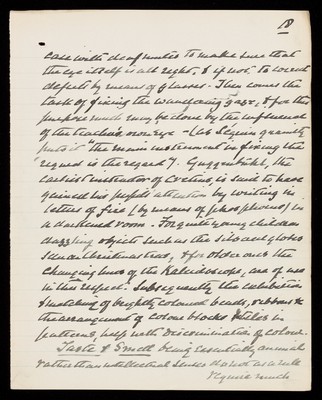 18
case with deaf mutes to make sure that
the eye itself is all right, & if not, to correct
defects by means of glasses. Then comes the
task of fixing the wandering gaze, & for this
purpose much may be done by the influence
of the teacher's own eye — (as Seguin quaintly
puts it "the main instrument in fixing the
regard is the regard"). Guggenbühl, the
earliest instructor of Cretins, is said to have
gained his pupils' attention by writing in
letters of fire (by means of phosphorus) in
a darkened room. For quite young children
dazzling objects such as the silvered globes
seen on Christmas trees, & for older ones the
changing hues of the Kaleidoscope, are of use
in this respect. Subsequently the exhibition
& matching of brightly coloured beads, ribbons &
the arrangement of colour blocks & tiles in
patterns, help with discrimination of colour.
Taste & Smell being essentially animal
rather than intellectual senses do not as a rule
require much